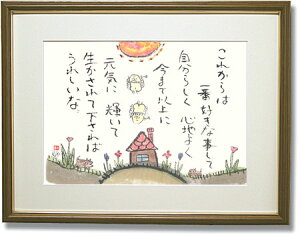 これからは
一番好きな事して
自分らしく 心地よく
今まで以上に
元気に 輝いて
生かされて下されば
うれしいな